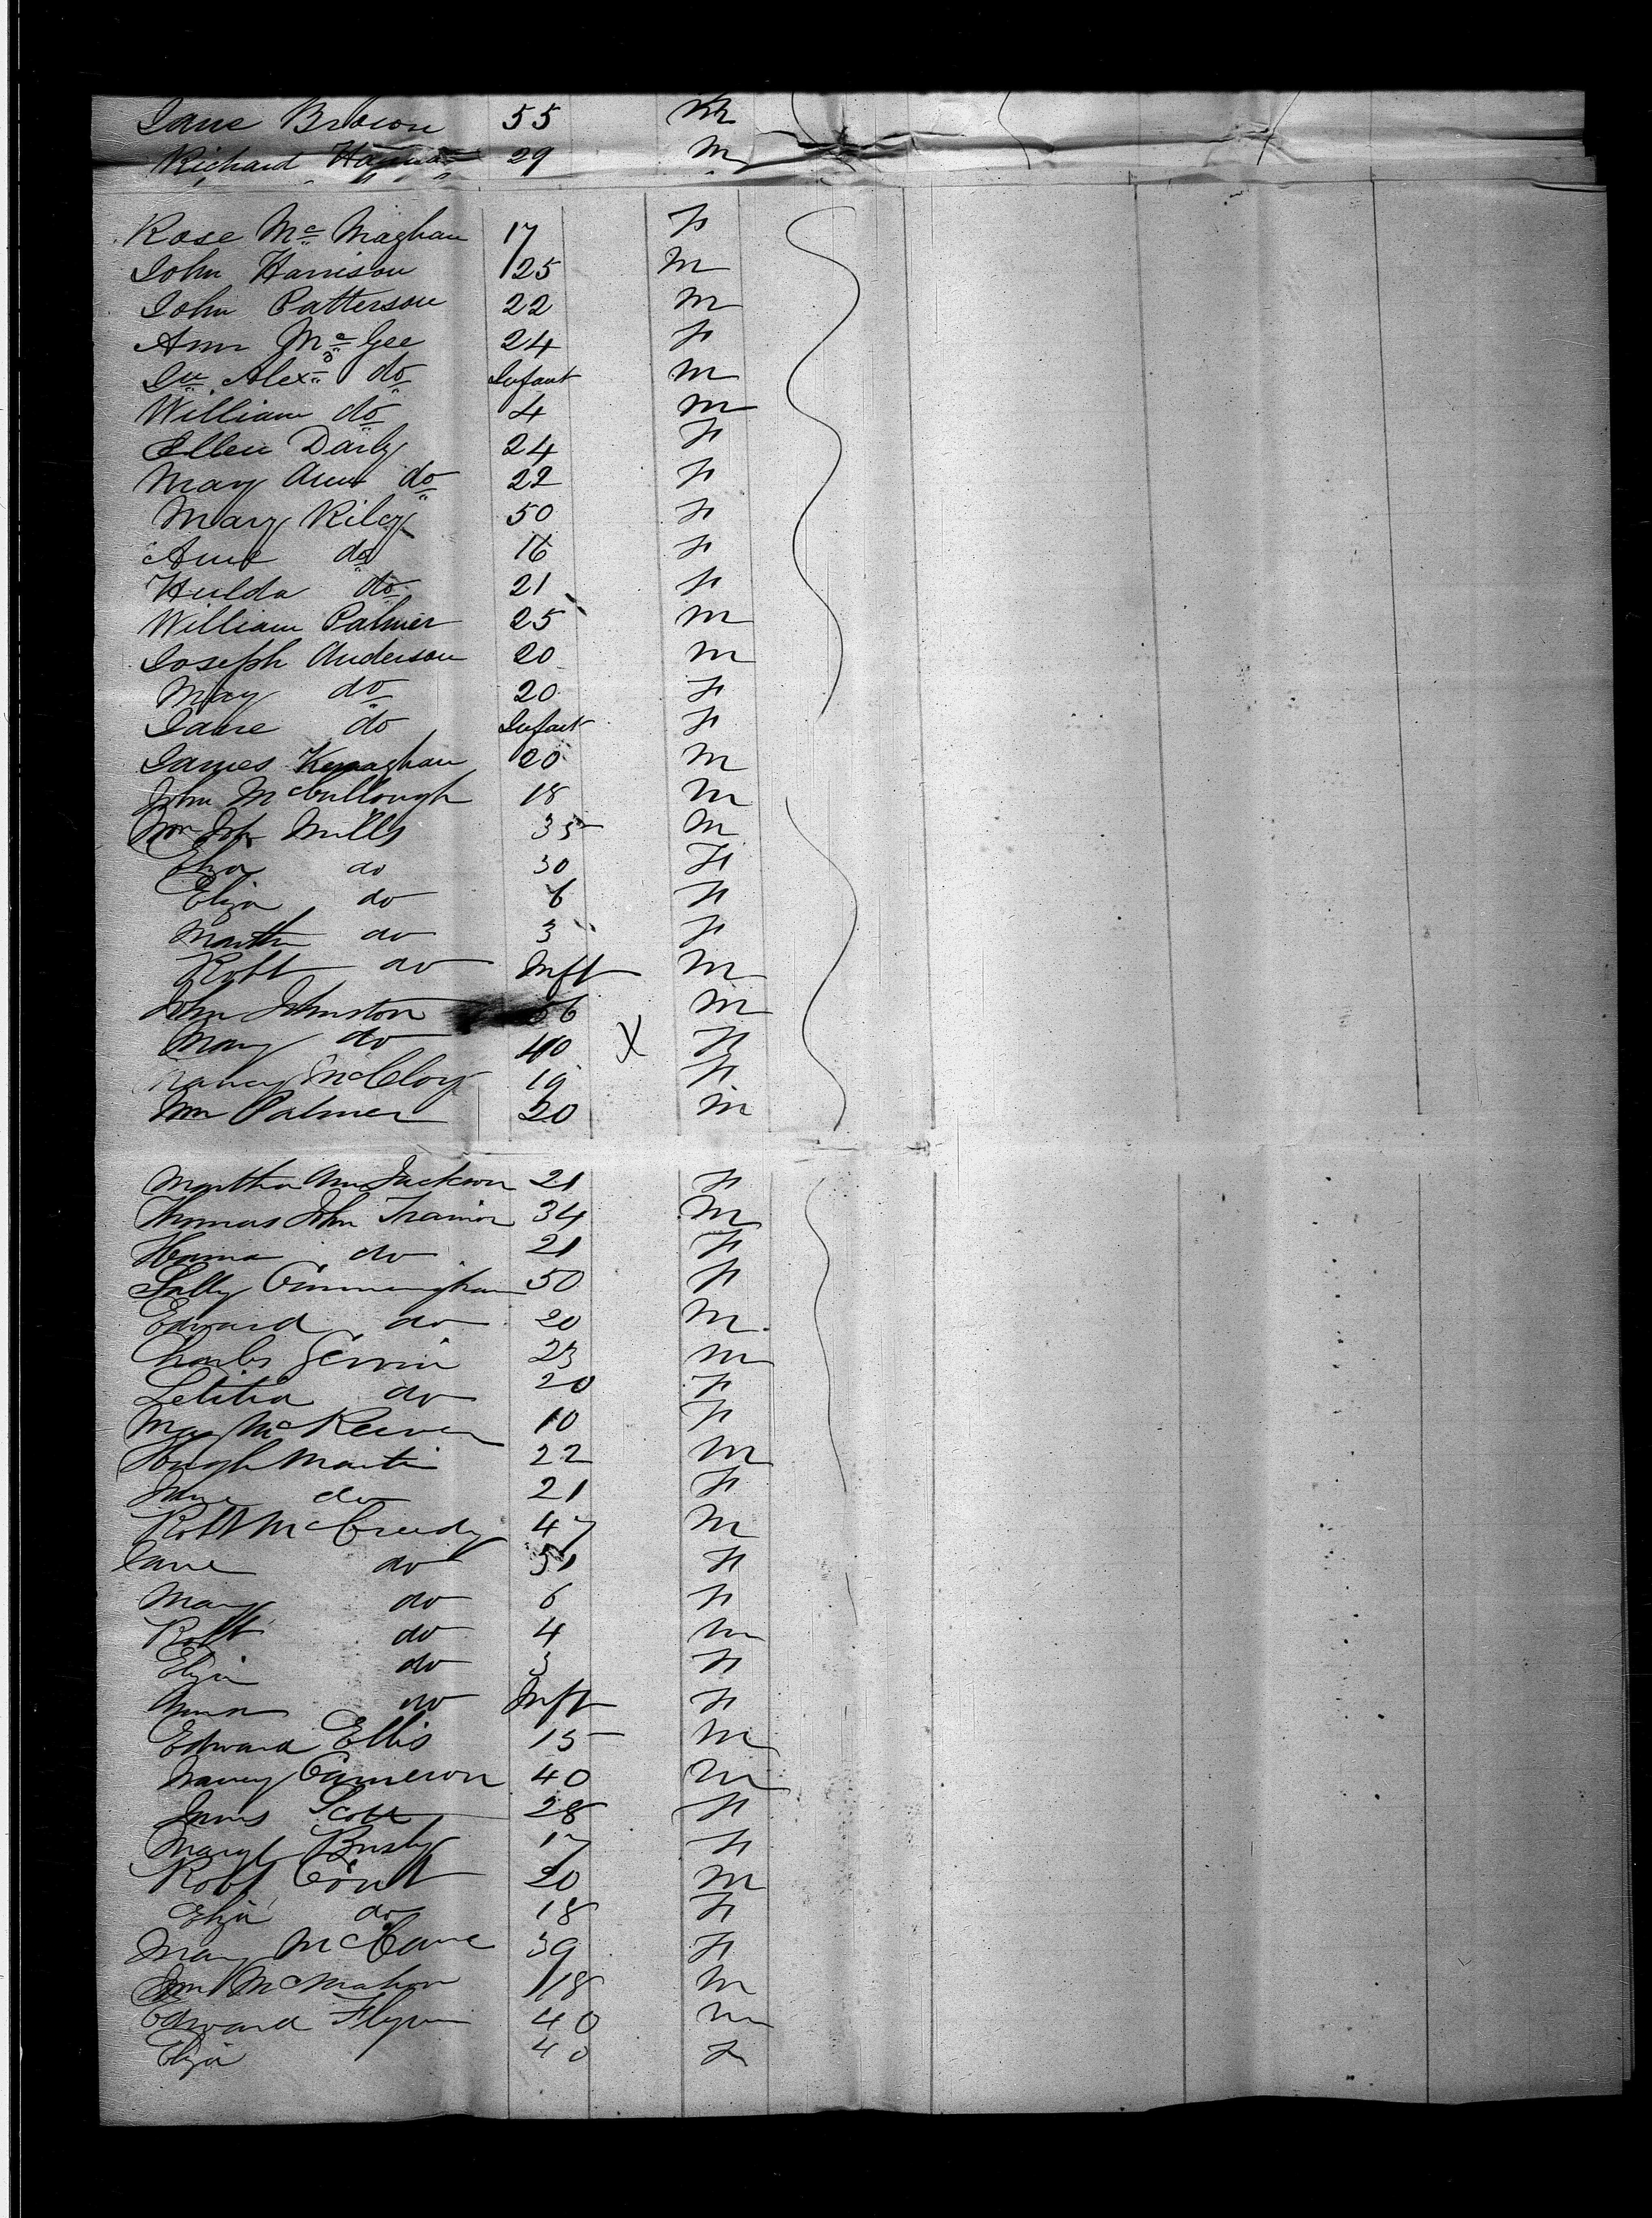 Jane Brown 55 M
Richard 29 M
Rose Mc Maghan 17 F
John Harrison 25 M
John Patterson 22 M
Ann Mc Gee 24 F
Alexr do Infant M
William do 4 M
Ellen Daily 24 F
Mary Ann do 22 F
Mary Riley 50 F
Anne do 16 F
Hulda do 21 F
William Palmer 25 M
Joseph Anderson 20 M
Mary do 20 F
Jane do Infant F
James Kernaghan 20 M
John McCullough 18 M
Wm John Mills 35 M
Eliza do 30 F
Eliza do 6 F
Martha do 3 F
Robt do Inft M
John Johnston 56 M
Mary do 40 X F
Nancy McCloy 19 F
Wm Palmer 20 M
Martha Ann Jackson 21 F
Thomas John Trainor 34 M
Hanna do 21 F
Sally Cunningham 50 F
Edward do 20 M
Charles Gervin 23 M
Letitia do 20 F
Mary McKeever 10 F
Hugh Martin 22 M
Jane do 21 F
Robt McCreedy 47 M
Jane do 31 F
Mary do 6 F
Robt do 4 M
Eliza do 3 F
Anna do Inft F
Edward Ellis 15 M
Nancy Cameron 40 M
James Scott 28 F
Margt Busby 17 F
Robt 20 M
Eliza do 18 F
Mary McCane 39 F
McMahon 18 M
Edward Flynn 40 M
Eliza 40 F